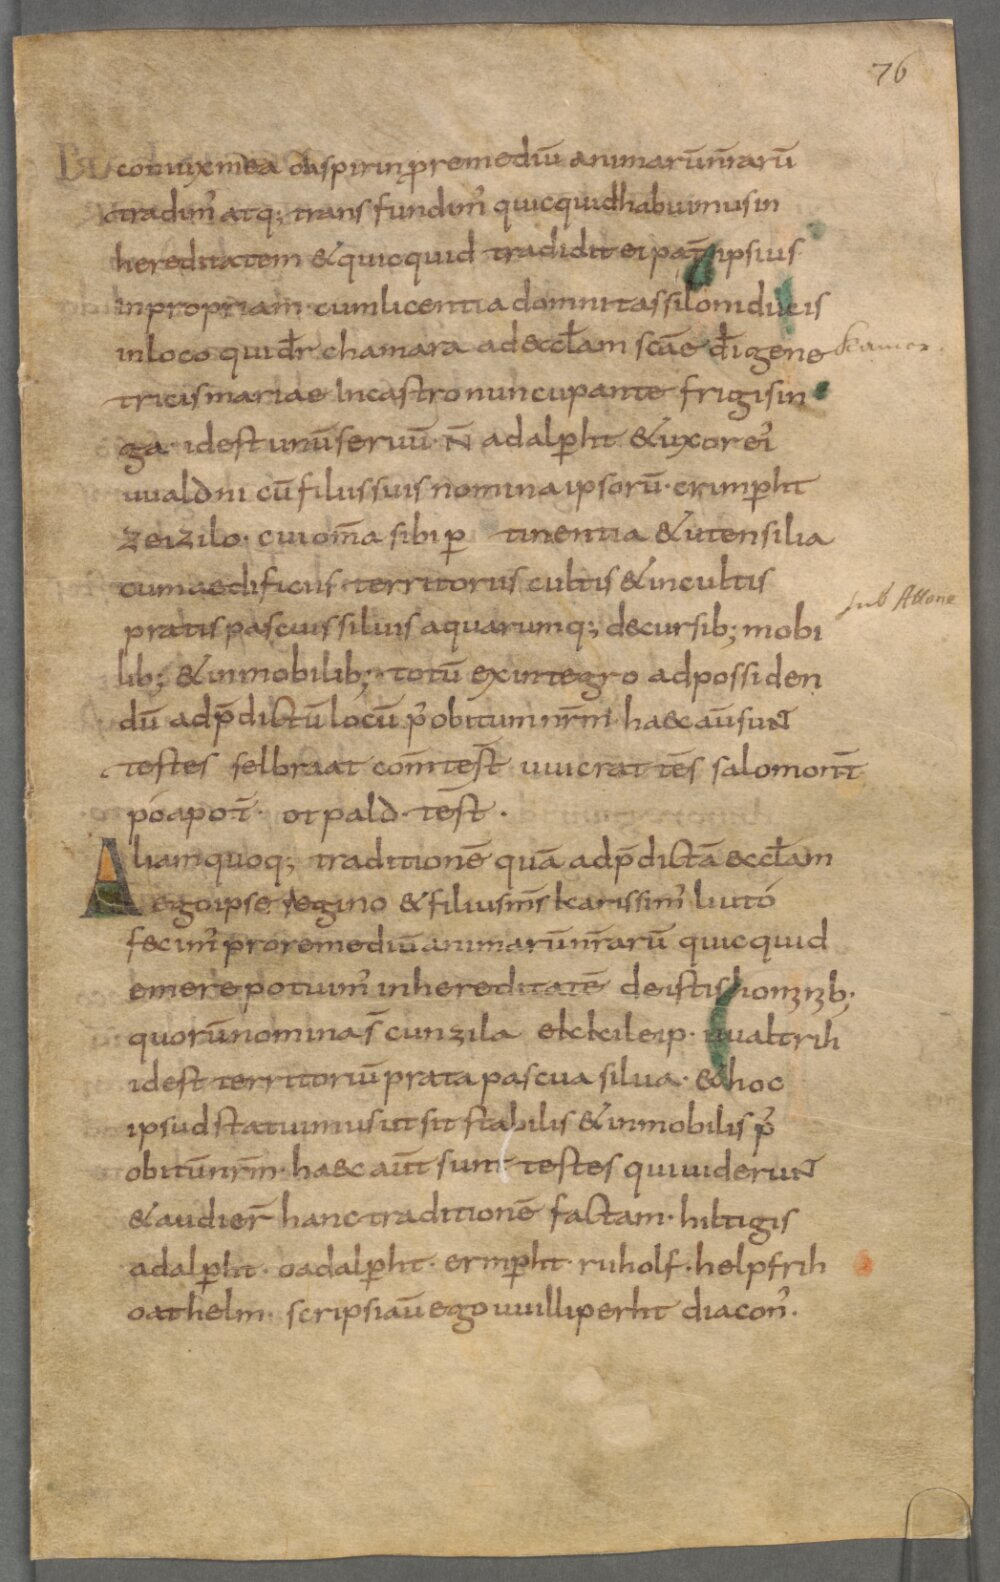 76
coniunx mea cuspirin ꝓ remediū animarū nr̄arū
tradim᾽ atq; transfundim᾽ quicquid habuimus in
hereditatem & quicquid tradidit ei pat̄ ipsius
in propriam cum licentia domni tassiloni ducis
in loco qui dr̄ chamara ad eccl̄am scāe dī gene
kamer.
tricis mariae In castro nuncupante frigisin
ga · id est unū seruū · N̄ adalꝑht & uxor ei᾽
uualdni cū filiis suis nomina ipsorū · erimꝑht
zeizilo · cui om̄a sibi ꝑ tinentia & utensilia
cum aedificiis territoriis cultis & incultis
sub Attone
pratis pascuis siluis aquarumq; decursib; mobi
lib; & inmobilib; totū ex integro ad possiden
dū ad p̄dictū locū p᾽ obitum nr̄m · haec aū sunt
testes selbraat com̄ test̄ uuicrat tēs salomon t̄
poapo t̄ · otpald · tēst ·
Aliam quoq; traditionē quā ad p̄dictā eccl̄am
ego ipse egino & filius m̄s karissim᾽ liuto
fecim᾽ pro remediū animarū nr̄arū quicquid
emere potuim᾽ in hereditatē de istis hominib;
quorū nomina s̄ cunzila ekkileip · uualtrih
id est territoriū prata pascua silua · & hoc
ipsud statuimus ut sit stabilis & inmobilis p᾽
obitū nr̄m · haec aūt sunt testes qui uiderunt
& audier̄ hanc traditionē factam · hiltigis
adalꝑht · oadalꝑht · ermꝑht · ruholf · helpfrih
oathelm · scripsi aū ego uuilliperht diacon᾽ ·